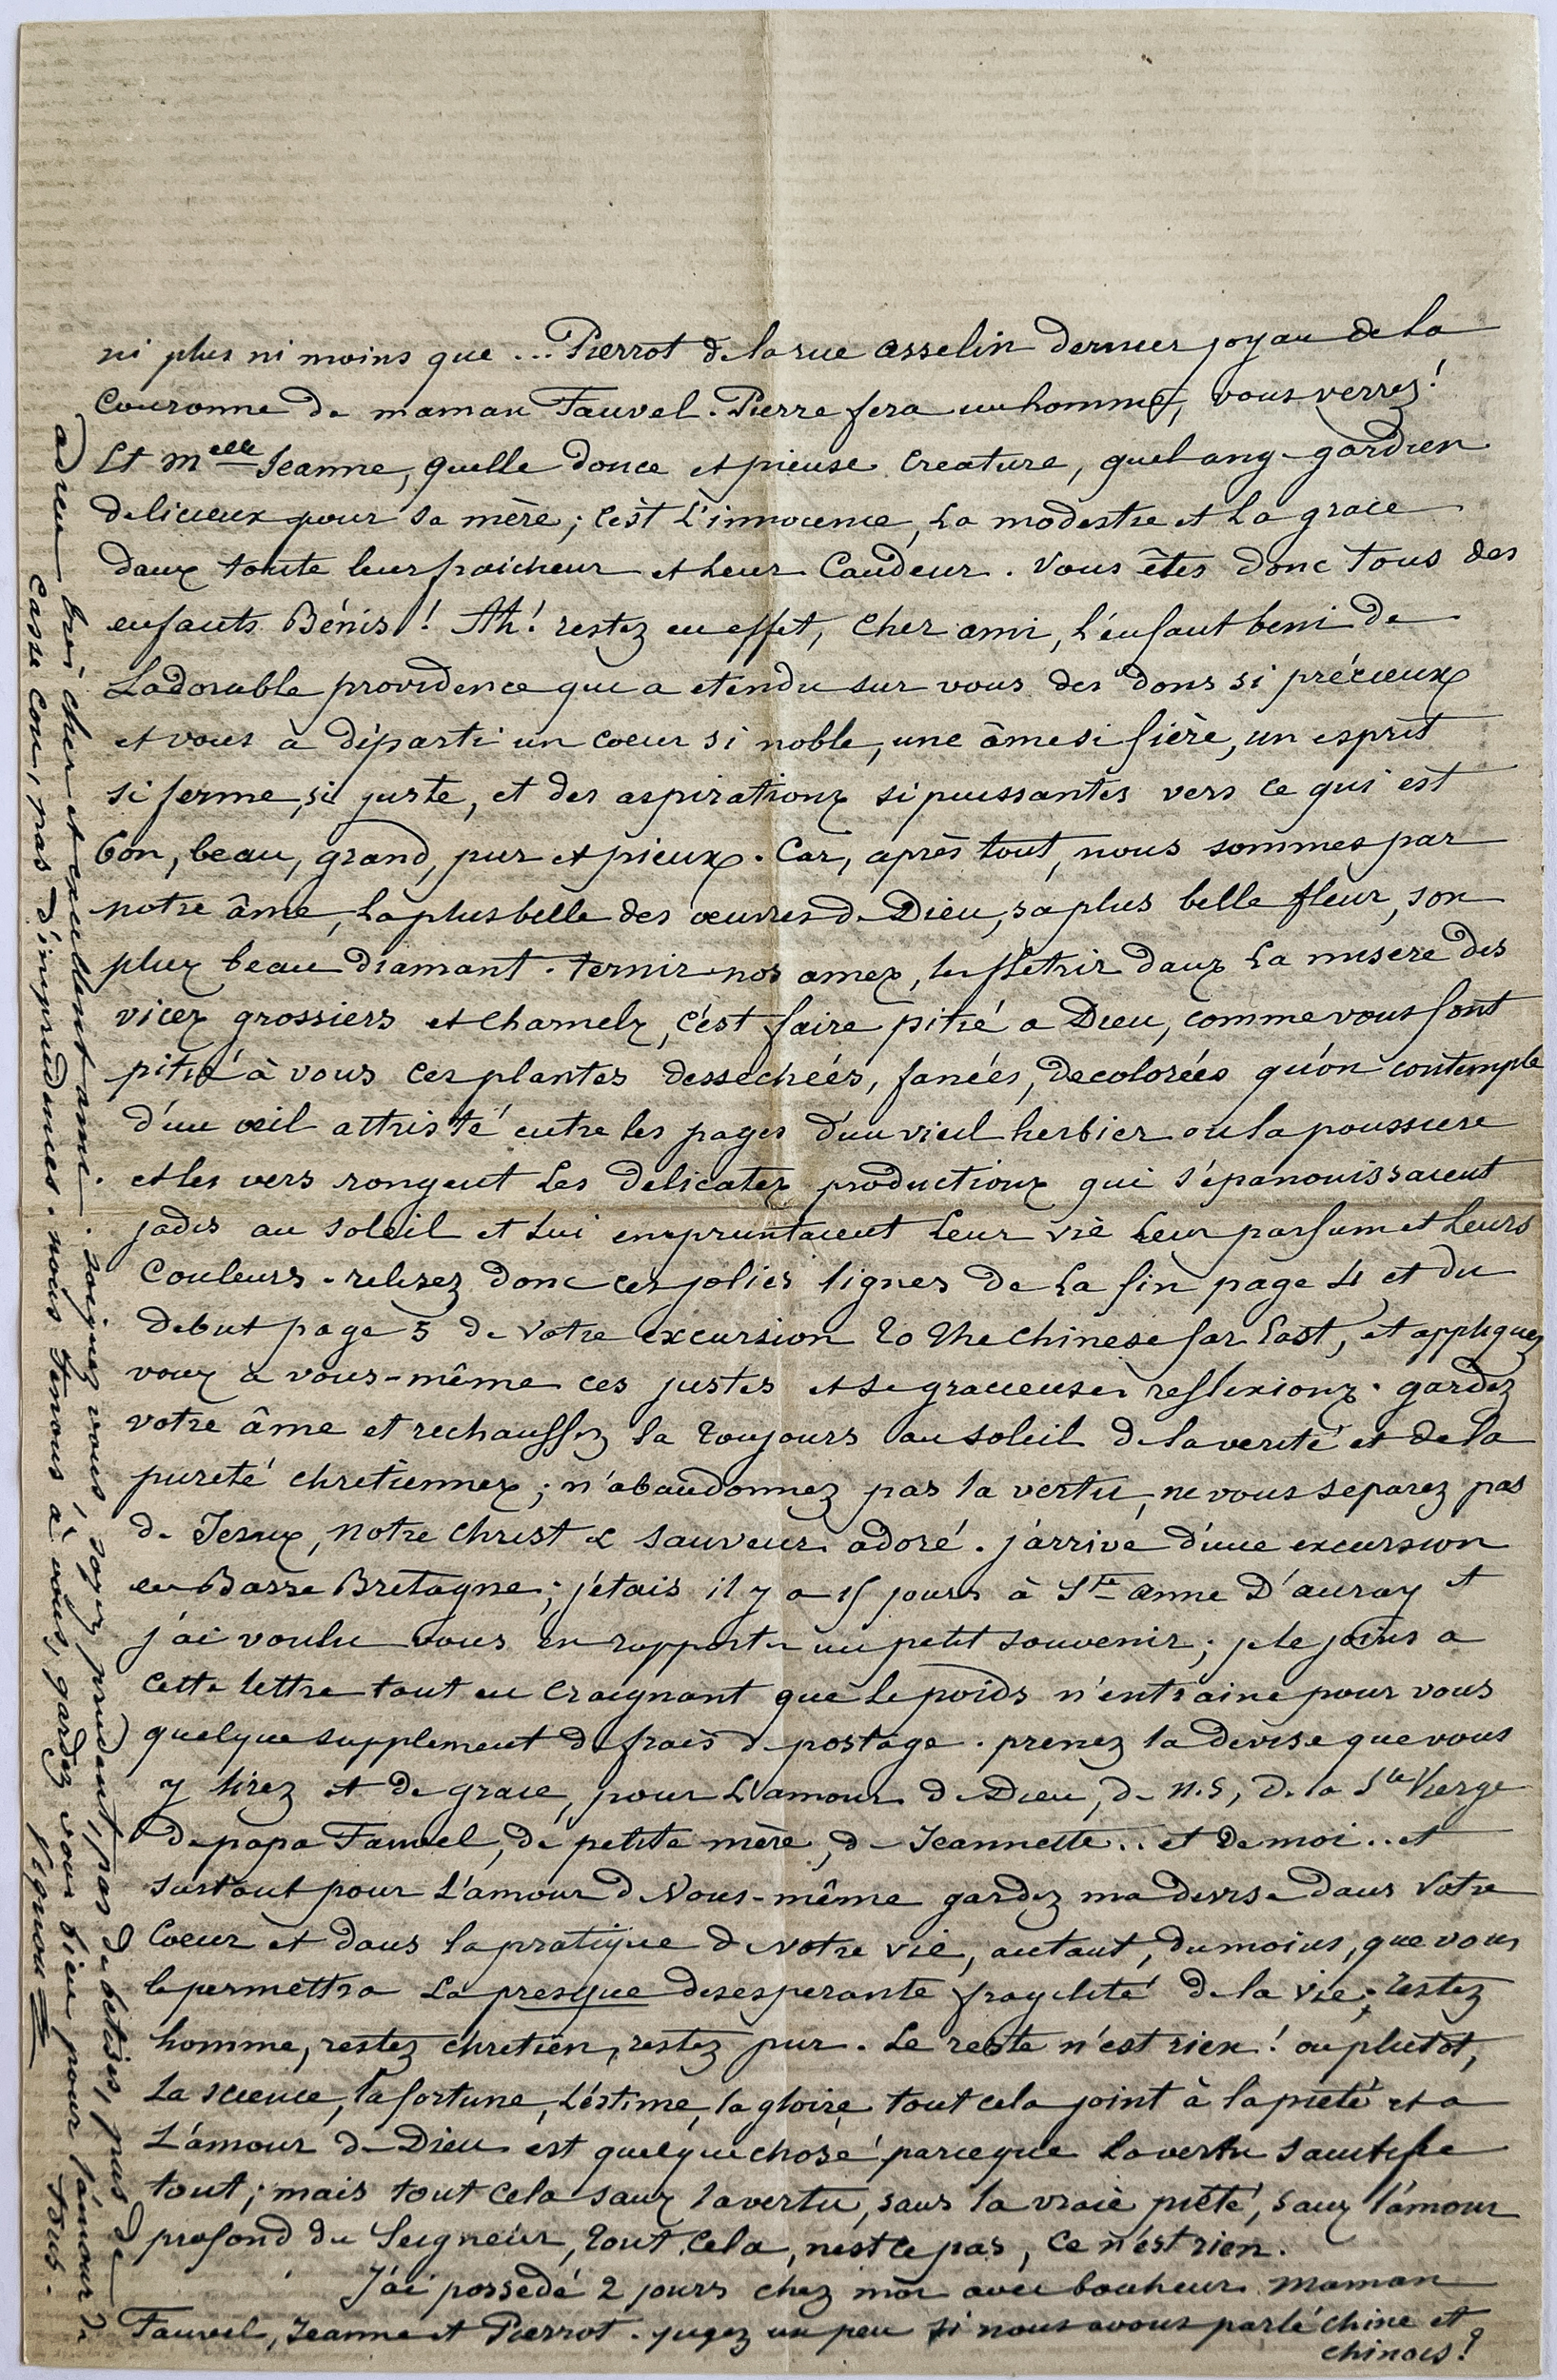 ni plus ni moins que ... Pierrot de la rue asselin dernier joyau de la
Couronne de maman Fauvel. Pierre fera un homme, vous verrez!
Et Melle Jeanne, quelle douce et pieuse creature, quel ange gardien
delicieux pour sa mère; c'est l'innocence, la modestie et la grace
dans toute leur fraicheur et leur Candeur. Vous êtes donc tous des
enfants Bénis! Ah! restez en effet, cher ami, l'enfant beni de
L'adorable providence qui a etendu sur vous des dons si précieux
et vous à départi un coeur si noble, une âme si fière, un esprit
si ferme, si juste, et des aspirations si puissantes vers ce qui est
bon, beau, grand, pur et pieux. Car, après tout, nous sommes par
notre âme, la plus belle des oeuvres de Dieu, sa plus belle fleur, son
plus beau diamant. ternir nos ames, les flétrir dans la misere des
vices grossiers et charnels, c'est faire pitié a Dieu, comme vous font
pitié à vous ces plantes desséchées, fanées, decolorées qu'on contemple
d'un oeil attristé entre les pages d'un vieil herbier ou la poussiere
et les vers rongent les delicates productions qui s'épanouissaient
jadis au soleil et lui empruntaient leur vie leur parfum et leurs
Couleurs. relisez donc ces jolies lignes de la fin page 4 et du
debut page 5 de votre excursion to the chinese far East, et appliquez
vous à vous-même ces justes et si gracieuses reflexions. gardez
votre âme et rechauffez la toujours au soleil de la verité et de la
pureté chretiennes; n'abandonnez pas la vertu, ne vous separez pas
de Jesus, notre Christ & sauveur adoré. j'arrive d'une excursion
en Basse Bretagne; j'etais il y a 15 jours à Ste Anne D'auray et
j'ai voulu vous en rapporter un petit souvenir; je le joins a
cette lettre tout en craignant que le poids n'entraine pour vous
quelque supplement de frais de postage. prenez la devise que vous
y lirez et de grace, pour l'amour de Dieu, de N.S, de la Ste Vierge
de papa Fauvel, de petite mère, de Jeannette.. et de moi.. et
surtout pour l'amour de Vous-même gardez ma devise dans Votre
Coeur et dans la pratique de votre vie, autant, du moins, que vous
le permettra la presque desesperante fragilité de la vie; restez
homme, restez chretien, restez pur. Le reste n'est rien! ou plutot,
la science, la fortune, l'estime, la gloire tout cela joint à la pieté et a
L'amour de Dieu est quelque chose parceque la vertu sanctifie
tout; mais tout cela sans la vertu, sans la vraie piété, sans l'amour
profond du Seigneur, tout cela, n'est ce pas, ce n'est rien.
J'ai possedé 2 jours chez moi avec bonheur maman
Fauvel, Jeanne et Pierrot. jugez un peu si nous avons parlé chine et
chinois!
adieu tres cher et excellent ami. soignez vous, soyez prudent, pas de betises, pas de
casse cou, pas d'imprudences. nous tenons à vous, gardez vous bien pour l'amour de
tous.